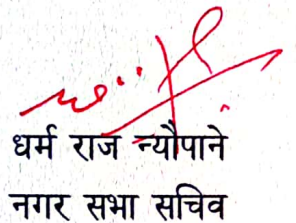 धर्म राज न्यौपाने
नगर सभा सचिव